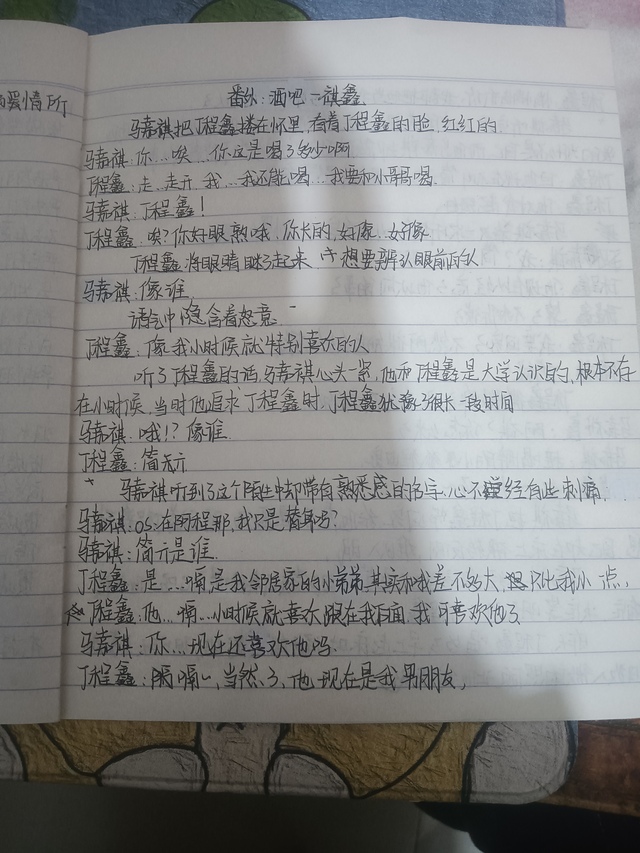 爱情所
番外:酒吧一祺鑫
马嘉祺把丁程鑫搂在怀里,看着丁程鑫的脸,红红的
马嘉祺:你...唉...你这是喝了多少啊
丁程鑫:走...走开,我...我还能喝...我要和小哥哥喝.
马嘉祺:丁程鑫!
丁程鑫:唉?你好眼熟哦,你长的,好像...好像
丁程鑫将眼睛眯了起来,想要辨认眼前的人
马嘉祺:像谁,
语气中隐含着怒意
丁程鑫:像我小时候就特别喜欢的人
听了丁程鑫的话,马嘉祺心头一紧,他和丁程鑫是大学认识的,根本不存
在小时候,当时他追求丁程鑫时,丁程鑫犹豫了很长一段时间
马嘉祺:哦!?像谁.
丁程鑫:简亓
马嘉祺听到了这个陌生中却带有熟悉感的名字,心不经有些刺痛.
马嘉祺:os:在阿程那,我只是替身吗?
马嘉祺:简亓是谁.
丁程鑫:是...嗝是我邻居家的小弟弟,其实和我差不多大,只比我小一点,
丁程鑫:他...嗝...小时候就喜欢跟在我后面,我可喜欢他了
马嘉祺:你...现在还喜欢他吗.
丁程鑫:嗝嗝~,当然了,他现在是我男朋友,